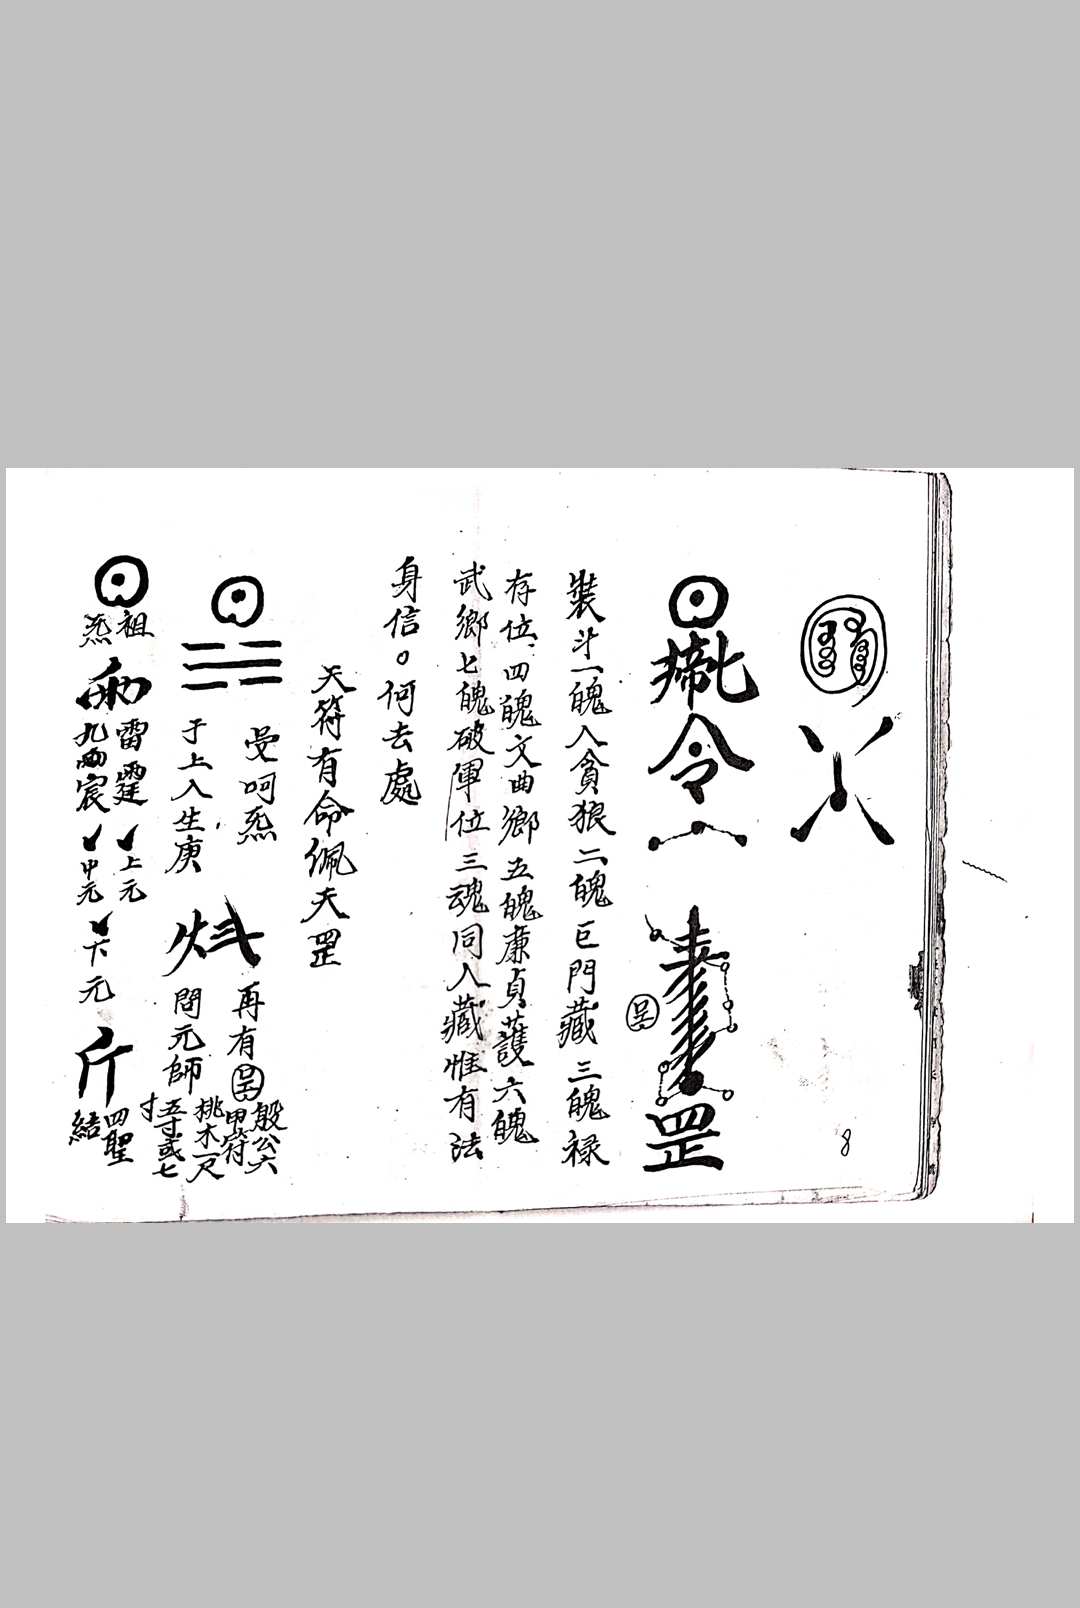 8
令
罡
裝斗一魄入貪狼二魄巨門藏三魄禄
存位四魄文曲鄉五魄廉貞護六魄
武鄉七魄破軍位三魂同入藏惟有法
身信。何去處
天符有命佩天罡
受呵炁
再有
般公六
甲符
于上入生庚
問元師
桃木一尺
五寸或七
寸
祖
炁
雷霆
九
宸
上元
中元
下元
斤
四聖
結